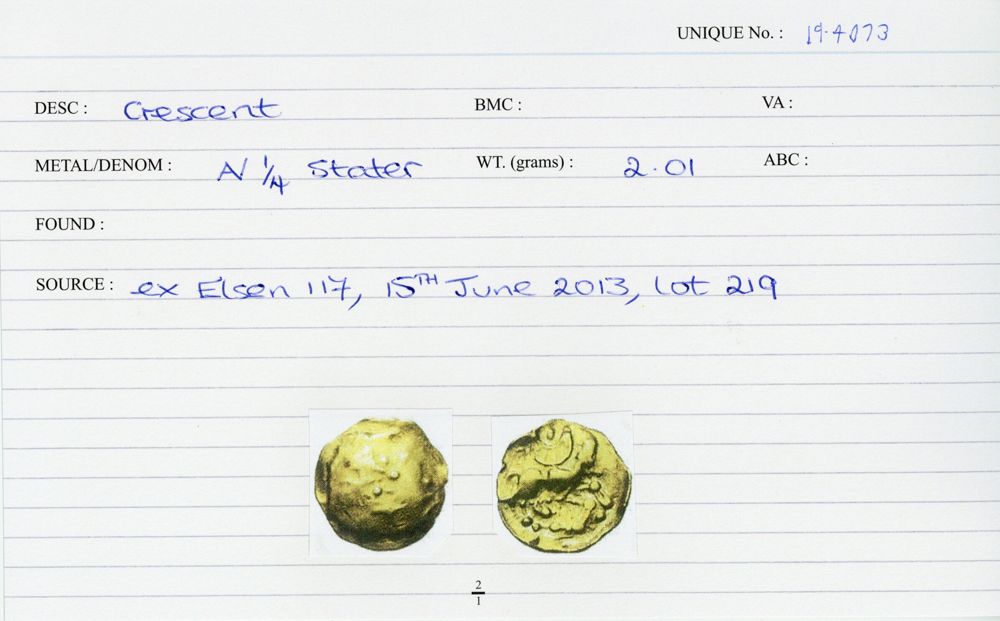 UNIQUE No. : 19.4073
DESC : Crescent BMC : VA :
METAL/DENOM : AV 1/4 Stater WT. (grams) : 2.01 ABC :
FOUND :
SOURCE : ex Elsen 117, 15TH June 2013, lot 219
2
1